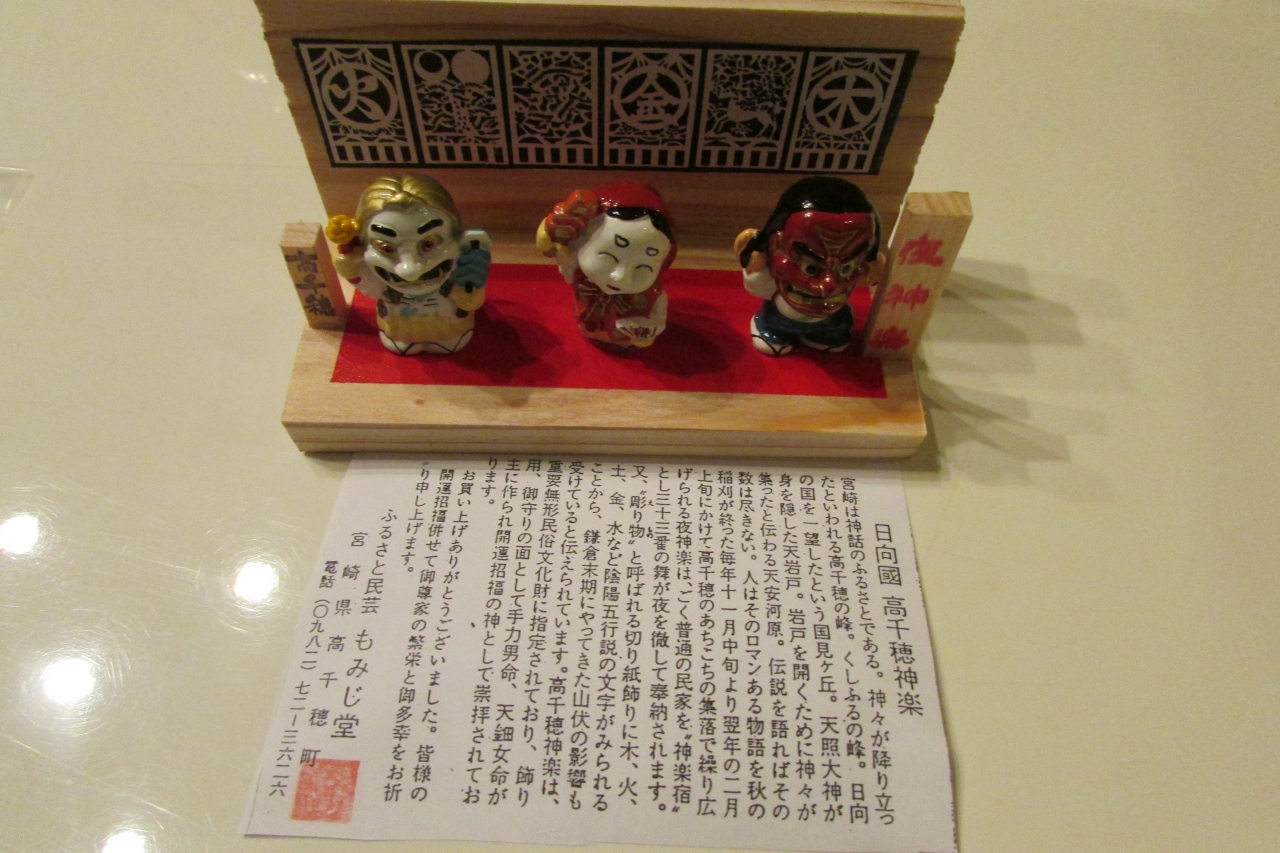 火
金
木
高千穂
夜神楽
日向國 高千穂神楽
宮崎は神話のふるさとである。神々が降り立っ
たといわれる高千穂の峰。くしふるの峰。日向
の国を一望したという国見ヶ丘。天照大神が
身を隠した天岩戸。岩戸を開くために神々が
集ったと伝わる天安河原。伝説を語ればその
数は尽きない。人はそのロマンある物語を秋の
稲刈が終った毎年十一月中旬より翌年の二月
上旬にかけて高千穂のあちこちの集落で繰り広
げられる夜神楽は、ごく普通の民家を〝神楽宿〟
とし三十三番の舞が夜を徹して奉納されます。
又、〝彫り物〟と呼ばれる切り紙飾りに木、火、
土、金、水など陰陽五行説の文字がみられる
ことから、鎌倉末期にやってきた山伏の影響も
受けていると伝えられています。高千穂神楽は、
重要無形民俗文化財に指定されており、飾り
用、御守りの面として手力男命、天鈿女命が
主に作られ開運招福の神として崇拝されてお
ります。
お買い上げありがとうございました。皆様の
開運招福併せて御尊家の繁栄と御多幸をお祈
り申し上げます。
ふるさと民芸 もみじ堂
宮崎県高千穂町
電話 (〇九八二)七二ー三六二六